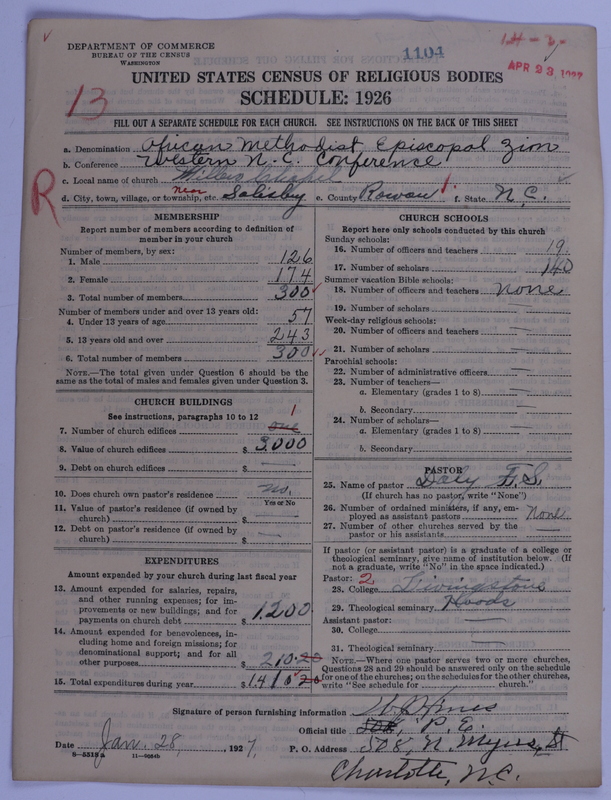 DEPARTMENT OF COMMERCE
BUREAU OF THE CENSUS
WASHINGTON
1104
APR 23 1927
UNITED STATES CENSUS OF RELIGIOUS BODIES
SCHEDULE: 1926
13
FILL OUT A SEPARATE SCHEDULE FOR EACH CHURCH. SEE INSTRUCTIONS ON THE BACK OF THIS SHEET
a. Denomination African Methodist Episcopal Zion
b. Conference Western N.C. Conference
c. Local name of church Chapel
R
d. City, town, village, or township, etc. near Salisby e. County Rowan f. State N.C.
MEMBERSHIP
Report number of members according to definition of
member in your church
Number of members, by sex:
1. Male 126
2. Female 174
3. Total number of members 300
Number of members under and over 13 years old:
4. Under 13 years of age 57
5. 13 years old and over 243
6. Total number of members 300
NOTE.—The total given under Question 6 should be the
same as the total of males and females given under Question 3.
CHURCH BUILDINGS
See instructions, paragraphs 10 to 12
7. Number of church edifices one 1
8. Value of church edifices $ 3,000
9. Debt on church edifices $ —
10. Does church own pastor's residence no.
Yes or No
11. Value of pastor's residence (if owned by
church) $ —
12. Debt on pastor's residence (if owned by
church) $ —
EXPENDITURES
Amount expended by your church during last fiscal year
13. Amount expended for salaries, repairs,
and other running expenses; for im-
provements or new buildings; and for
payments on church debt $ 1,200
14. Amount expended for benevolences, in-
cluding home and foreign missions; for
denominational support; and for all
other purposes $ 210.20
15. Total expenditures during year $ 1410 20
CHURCH SCHOOLS
Report here only schools conducted by this church
Sunday schools:
16. Number of officers and teachers 19
17. Number of scholars 140
Summer vacation Bible schools:
18. Number of officers and teachers none
19. Number of scholars —
Week-day religious schools:
20. Number of officers and teachers —
21. Number of scholars —
Parochial schools:
22. Number of administrative officers —
23. Number of teachers—
a. Elementary (grades 1 to 8) —
b. Secondary —
24. Number of scholars—
a. Elementary (grades 1 to 8) —
b. Secondary —
PASTOR
25. Name of pastor Daly F.S.
(If church has no pastor, write "None")
26. Number of ordained ministers, if any, em-
ployed as assistant pastors None
27. Number of other churches served by the
pastor or his assistants —
If pastor (or assistant pastor) is a graduate of a college or
theological seminary, give name of institution below. (If
not a graduate, write "No" in the space indicated.)
Pastor: 2
28. College Livingstone
29. Theological seminary Hoods
Assistant pastor:
30. College —
31. Theological seminary —
NOTE.—Where one pastor serves two or more churches,
Questions 28 and 29 should be answered only on the schedule
for one of the churches; on the schedules for the other churches,
write "See schedule for church."
Signature of person furnishing information
Official title P.E.
Date Jan. 28, 1927, P. O. Address 508, N. Myers St
8—5513a 11—9264b
Charlotte, N.C.